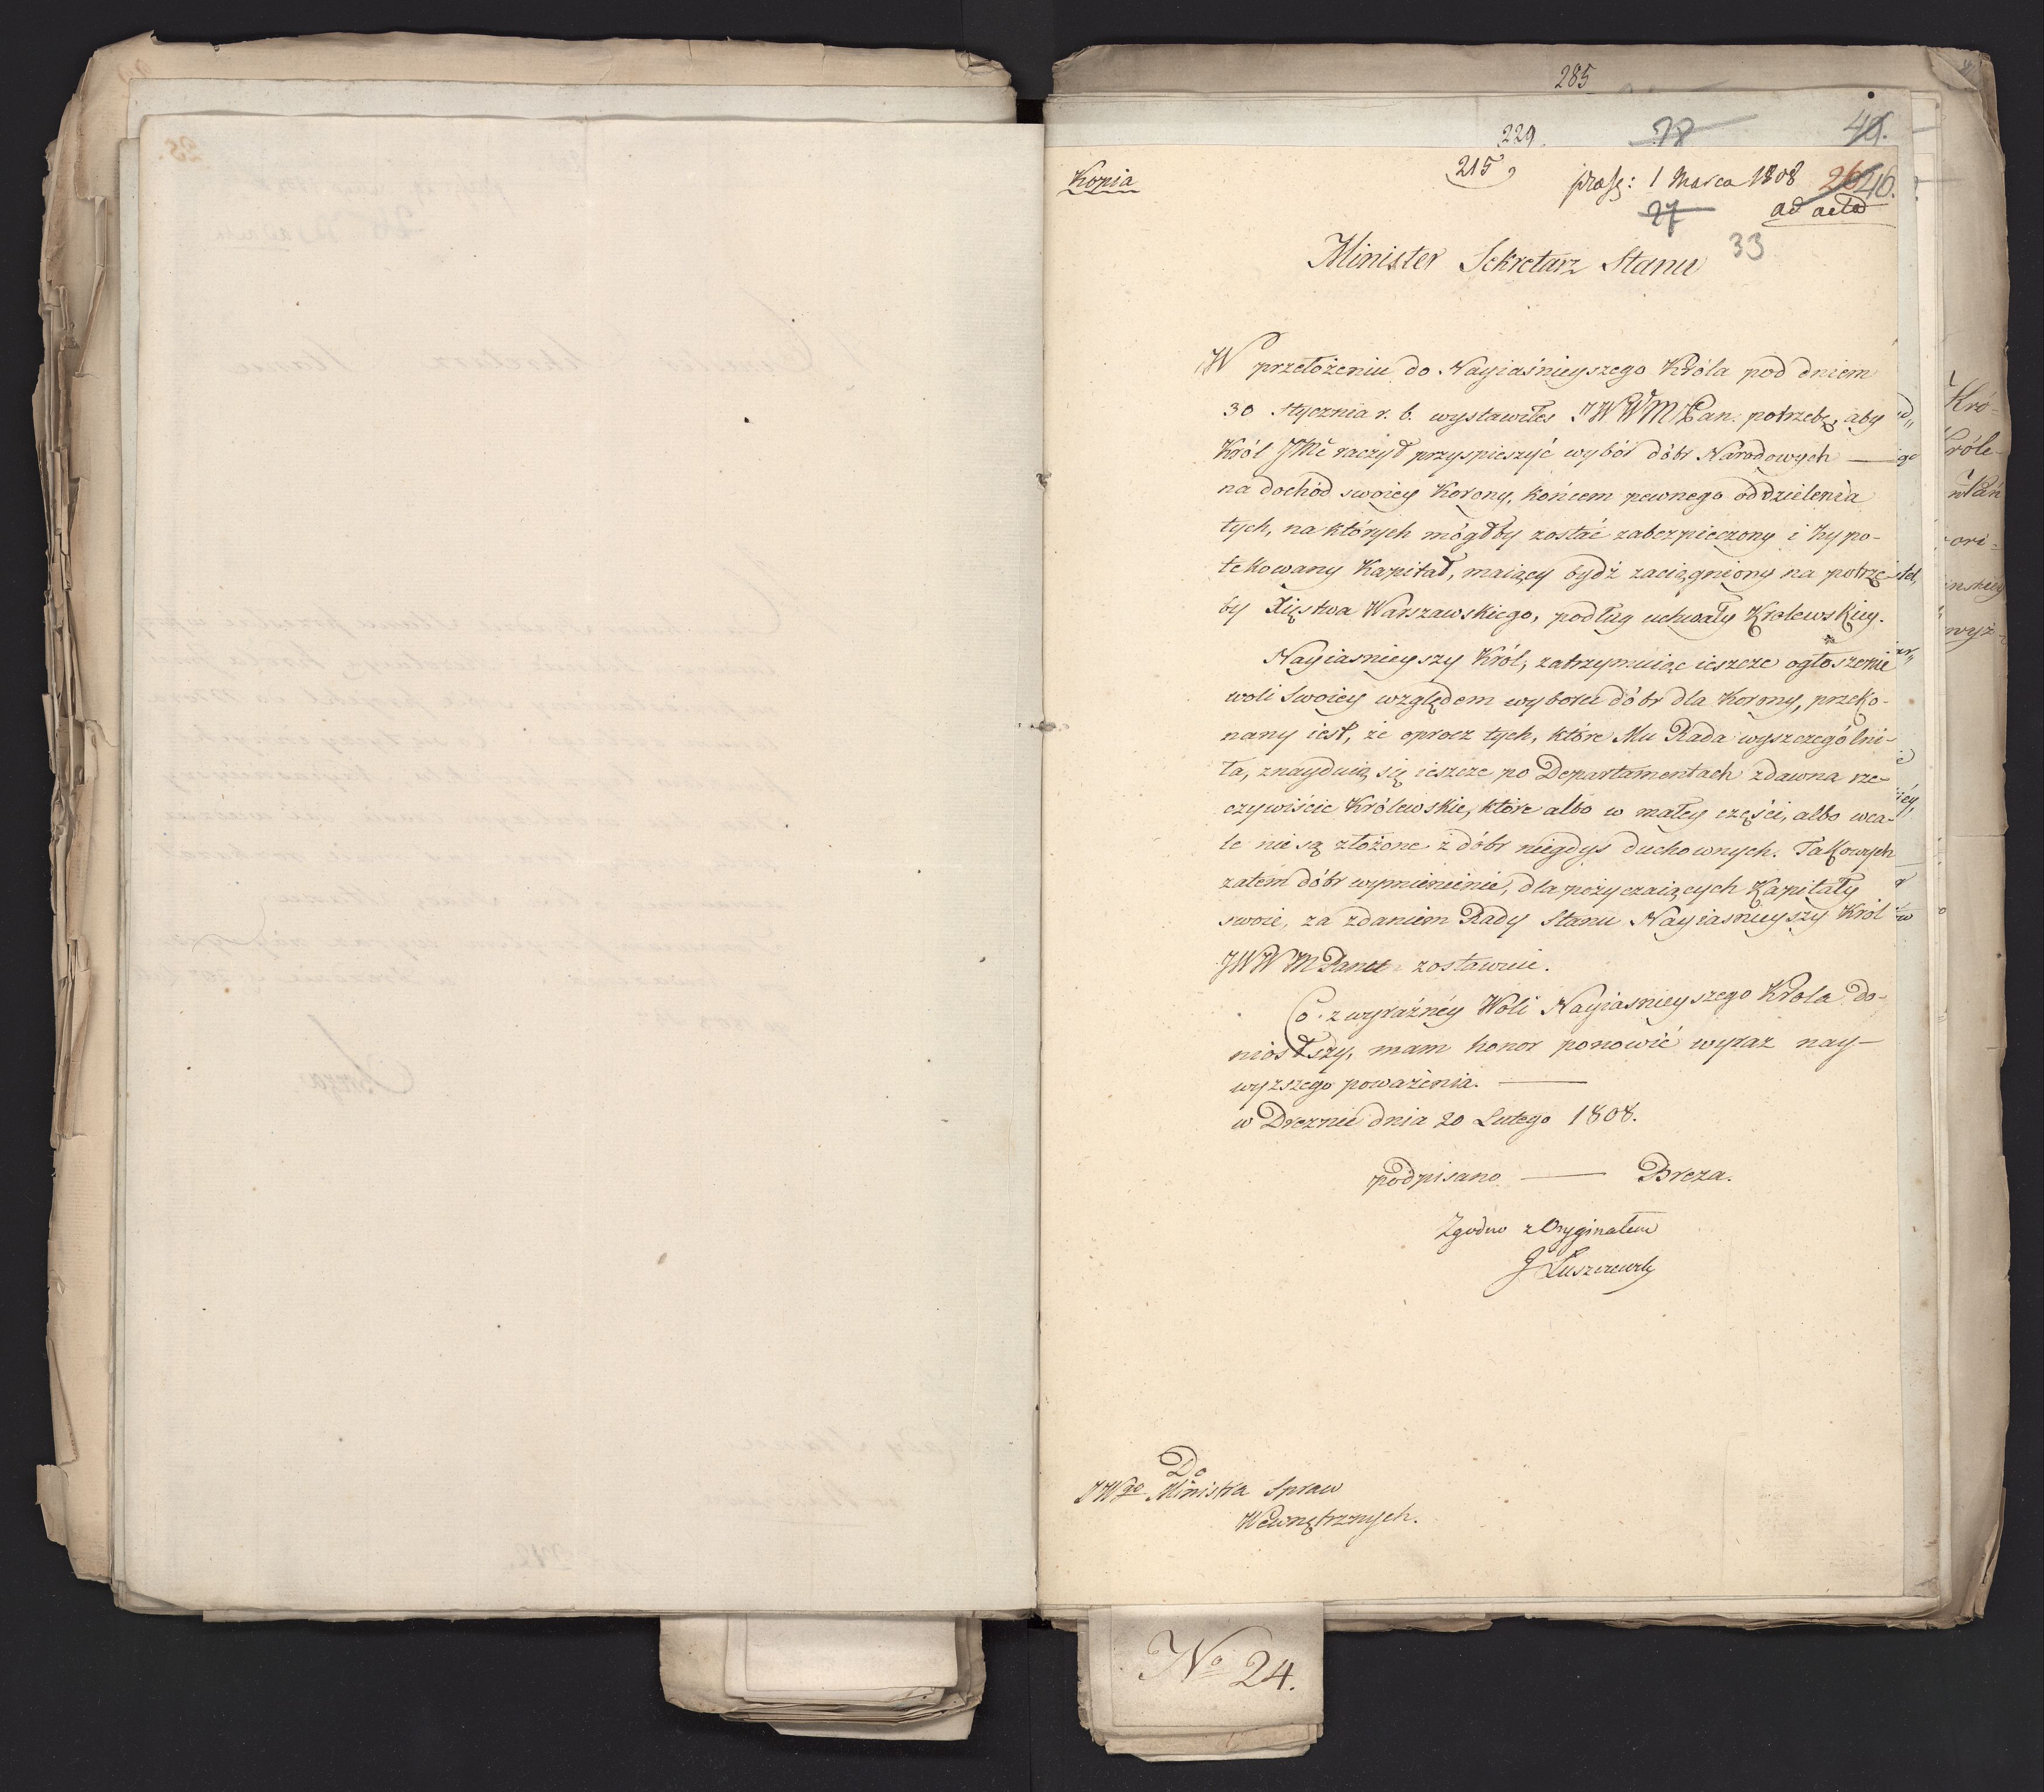 285
229.
78
49.
Kopia
215,
præs: 1 Marca 1808
26
46.
27
ad acta
33
Minister Sekretarz Stanu
W przełożeniu do Nayiaśnieyszego Króla pod dniem
30 Stycznia r. b. wystawiłes JWWMPan potrzebę, aby
Król JMć raczył przyspieszyć wybór dóbr Narodowych —
na dochód swoiey Korony, końcem pewnego oddzielenia
tych, na których mógłby zostać zabezpieczony i hypo-
tekowany Kapitał, maiący bydź zaciągniony na potrze-
by Xięstwa Warszawskiego, podług uchwały Krolewskiey.
Nayiasnieyszy Król, zatrzymuiąc ieszcze ogłoszenie
woli Swoiey względem wyboru dóbr dla Korony, przeko-
nany iest, że oprocz tych, które Mu Rada wyszczególni-
ła, znayduią się ieszcze po Departamentach zdawna rze-
czywiście Królewskie, które albo w małey części, albo wca-
le nie są złożone z dóbr niegdys duchownych. Takowych
zatem dóbr wymienienie, dla pożyczaiących Kapitały
swoie, za zdaniem Rady Stanu Nayiasnieyszy Król
JWWMPanu zostawuie.
Co z wyraźnéy Woli Nayiasnieyszego Króla do-
niosłszy, mam honor ponowić wyraz nay-
wyższego poważenia. —
w Dreznie dnia 20 Lutego 1808.
podpisano — Breza.
Zgodno z Oryginałem
J Łuszczewsky
Do
JWgo Ministra Spraw
Wewnętrznych.
No 24.